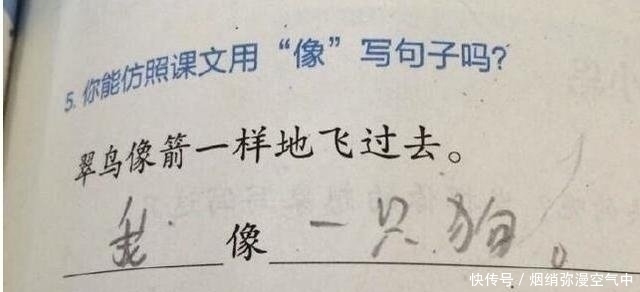 5. 你能仿照课文用“像”写句子吗？
翠鸟像箭一样地飞过去。
我像一只狗。
快传号/烟绡弥漫空气中